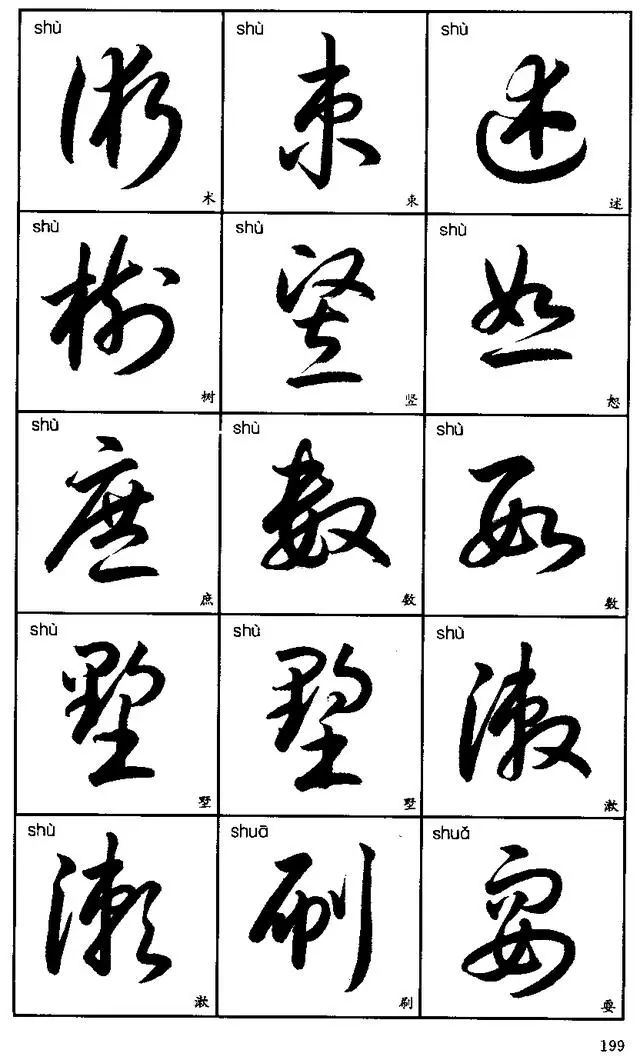 shù shù shù
術 束 述
术 束 述
shù shù shù
樹 竖 恕
树 竖 恕
shù shù shù
庶 數 數
庶 数 数
shù shù shù
墅 墅 漱
墅 墅 漱
shù shuā shuǎ
漱 刷 耍
漱 刷 耍
199